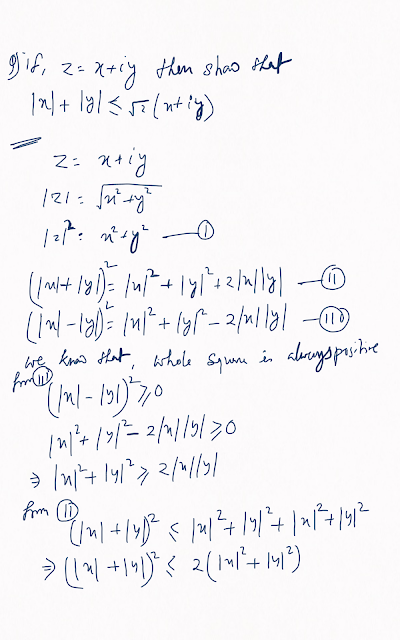 9) if, z = x+iy then shao that
|x| + |y| ≤ √2 (x+iy)
z = x+iy
|z| = √x²+y²
|z|² = x²+y² —(I)
(|x|+|y|)² = |x|² + |y|² + 2|x||y| —(II)
(|x|-|y|)² = |x|² + |y|² - 2|x||y| —(III)
we know that, whole square is always positive
from (III)
(|x|-|y|)² ≥ 0
|x|² + |y|² - 2|x||y| ≥ 0
⇒ |x|² + |y|² ≥ 2|x||y|
from (II)
(|x| + |y|)² ≤ |x|² + |y|² + |x|² + |y|²
⇒ (|x| + |y|)² ≤ 2(|x|² + |y|²)